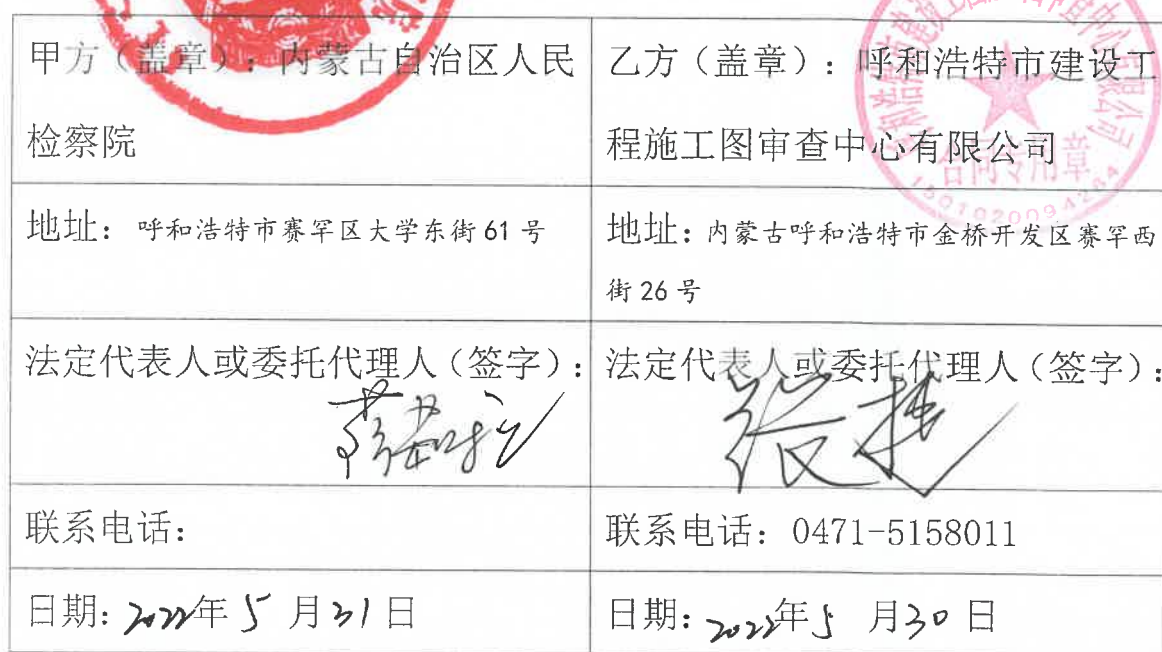 甲方（盖章）：内蒙古自治区人民
检察院
乙方（盖章）：呼和浩特市建设工
程施工图审查中心有限公司
合同专用章
地址：呼和浩特市赛罕区大学东街61号
地址：内蒙古呼和浩特市金桥开发区赛罕西
街26号
法定代表人或委托代理人（签字）：
法定代表人或委托代理人（签字）：
联系电话：
联系电话：0471-5158011
日期：2022年5月31日
日期：2022年5月30日